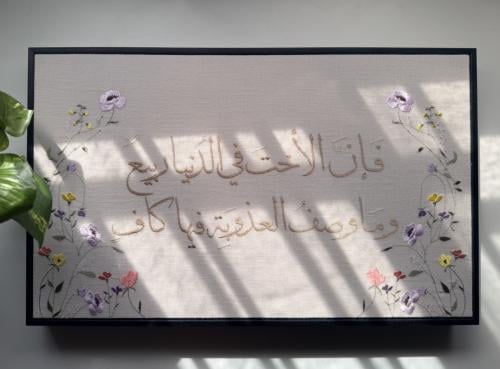 فَإنَّ الأختَ في الدنيا ربيعَ
وما وصفُ العذوبةِ فيها كافِ